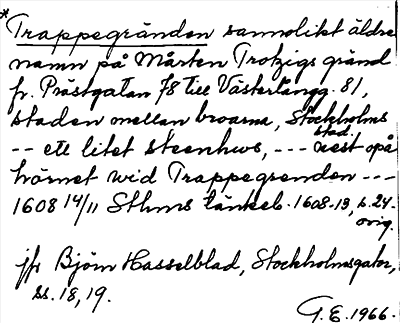 *Trappegränden sannolikt äldre
namn på Mårten Trotzigs gränd
fr. Prästgatan 78 till Västerlångg. 81,
staden mellan broarna, Stockholms
stad.
-- ett litet steenhws, --- nest opå
hörnet wid Trappegrenden ---
1608 14/11 Sthms tänkeb. 1608-13, s. 24.
ovig.
jfr Björn Hasselblad, Stockholmsgator,
ss. 18, 19.
G.E. 1966.